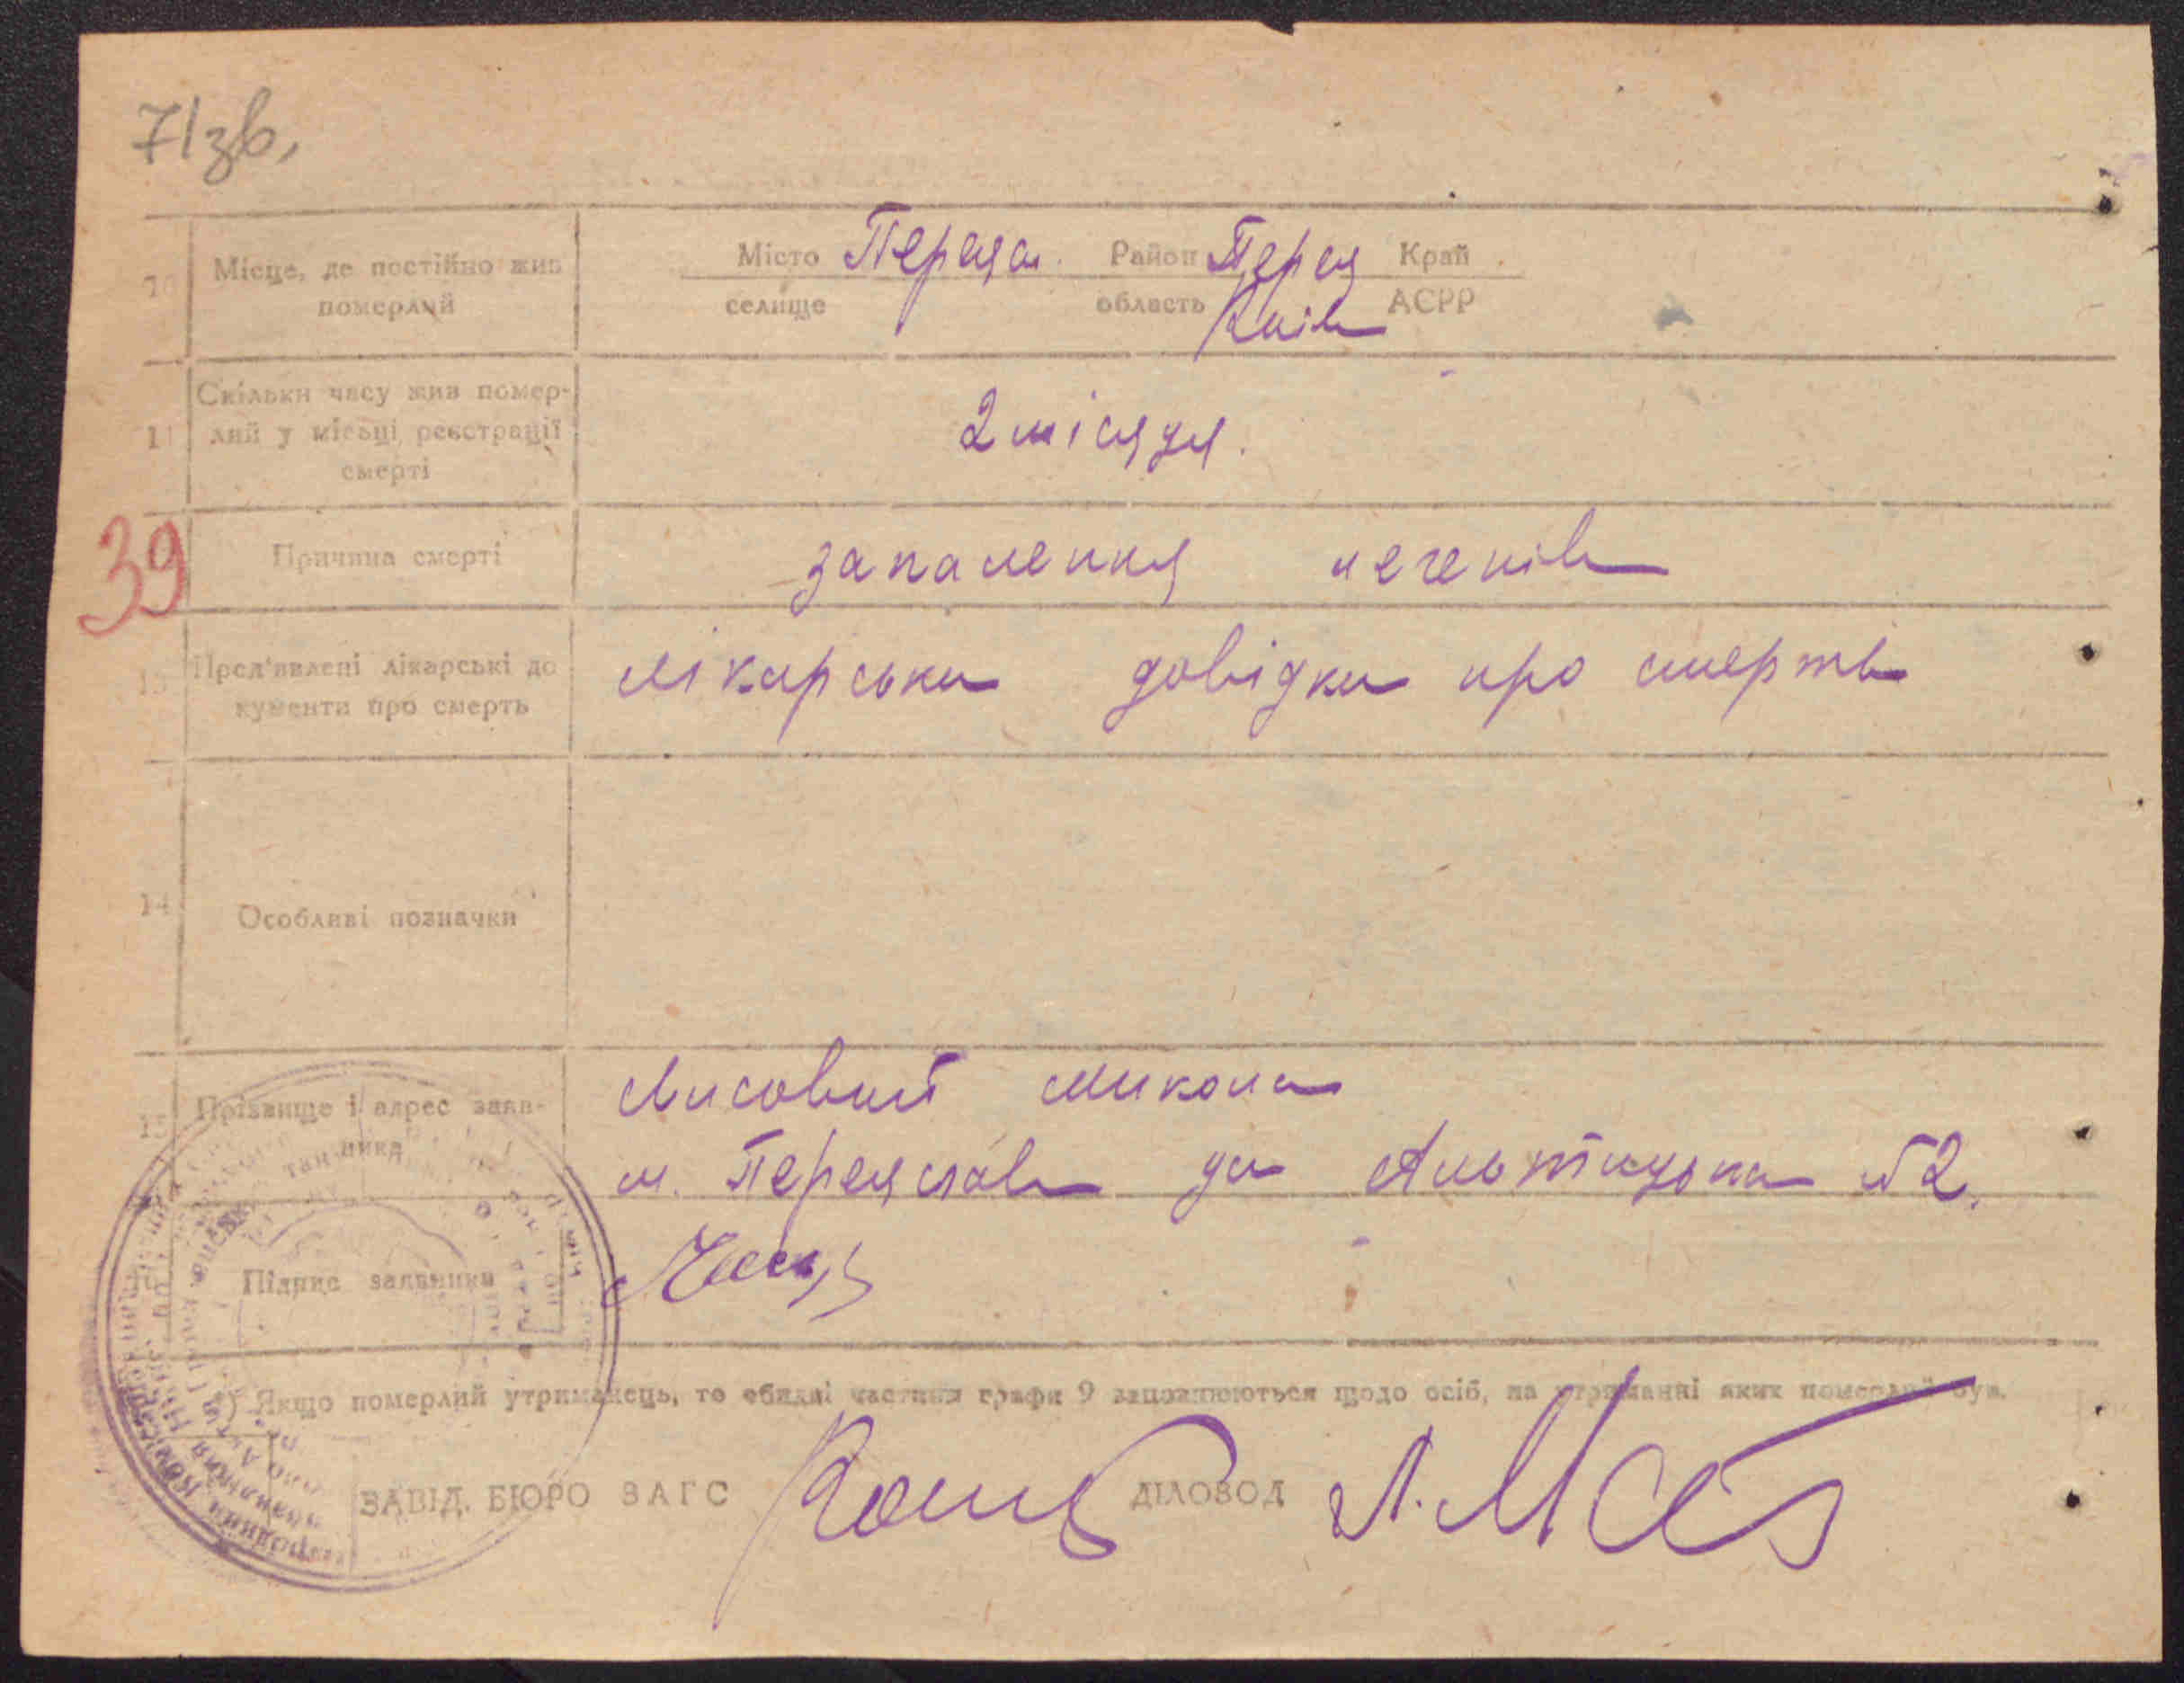 71зв.
10 Місце, де постійно жив Місто Переясл. Район Перея Край
померлий селище область Київ АСРР
Скільки часу жив помер-
11 лий у місьці реєстрації 2 місяця.
смерті
39 Причина смерті запалення легенів
13 Пред'явлені лікарські до лікарська довідка про смерть
кументи про смерть
14 Особливі позначки
15 Прізвище і адрес заяв- Лисовий Микола
ника м. Переяслав ул Альтицька №2.
16 Підпис заявника
Якщо померлий утриманець, то обидві частини графи 9 заповнюються щодо осіб, на утриманні яких померлий був.
ЗАВІД. БЮРО ЗАГС ДІЛОВОД